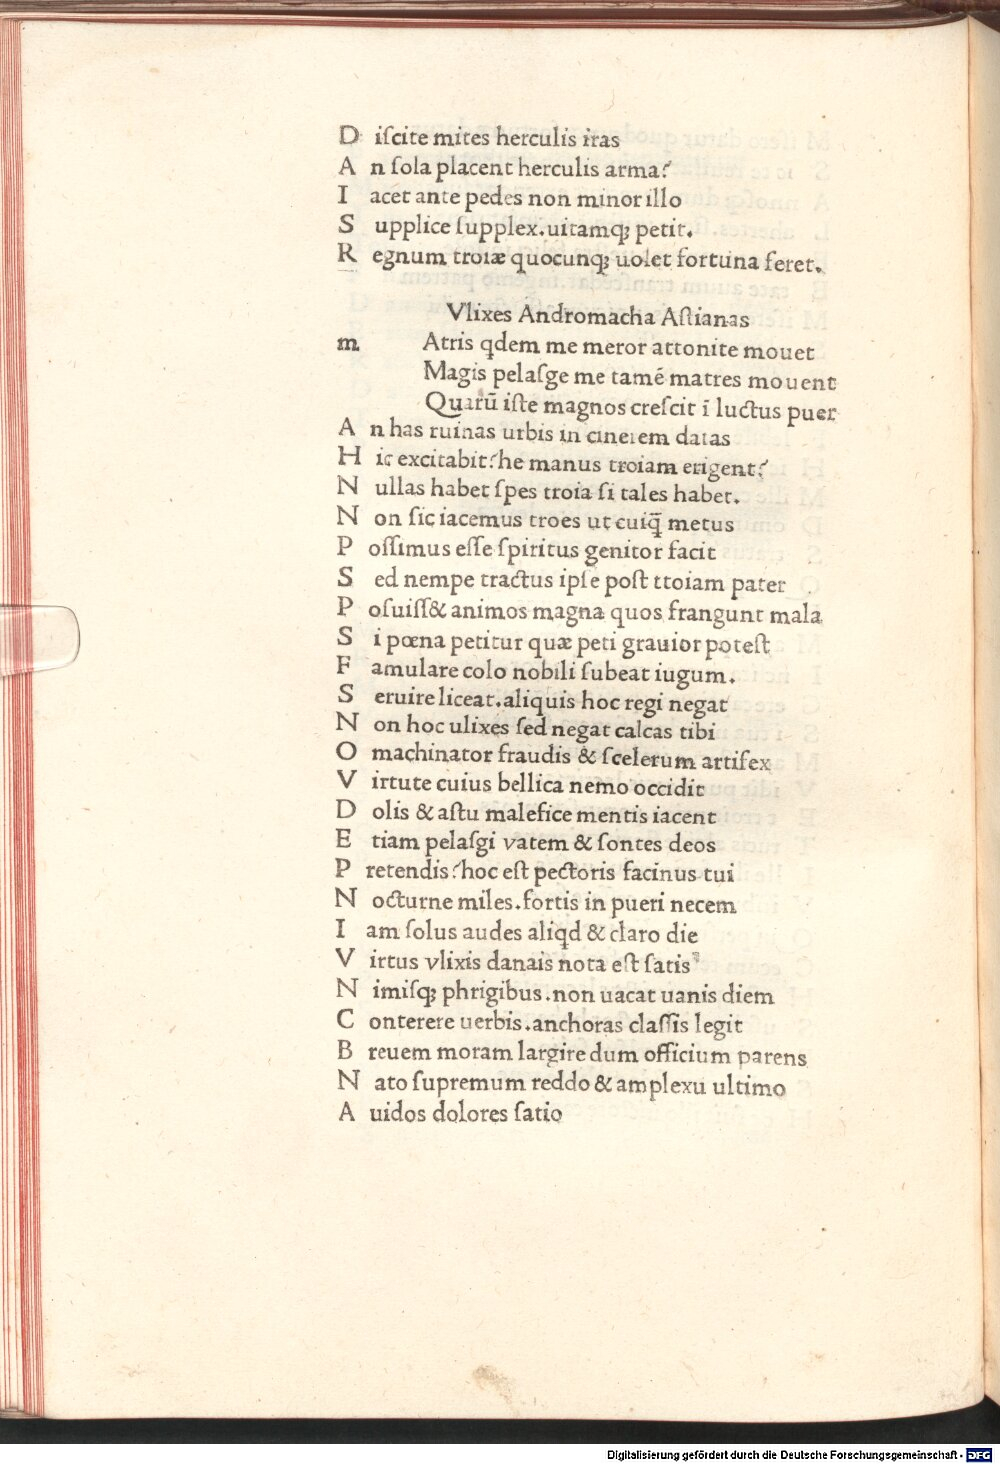 D iſcite mites herculis iras
A n ſola placent herculis arma?
I acet ante pedes non minor illo
S upplice ſupplex.uitamqꝫ petit.
R egnum troiæ quocunqꝫ uolet fortuna feret.
Vlixes Andromacha Aſtianas
m Atris qdem me meror attonite mouet
Magis pelaſge me tamē matres mouent
Quarū iſte magnos creſcit ī luctus puer
A n has ruinas urbis in cinerem datas
H ic excitabit?he manus troiam erigent?
N ullas habet ſpes troia ſi tales habet.
N on ſic iacemus troes ut cuiq̄ metus
P oſſimus eſſe ſpiritus genitor facit
S ed nempe tractus ipſe poſt ttoiam pater
P oſuiſſ& animos magna quos frangunt mala
S i pœna petitur quæ peti grauior poteſt
F amulare colo nobili ſubeat iugum.
S eruire liceat.aliquis hoc regi negat
N on hoc ulixes ſed negat calcas tibi
O machinator fraudis & ſcelerum artifex
V irtute cuius bellica nemo occidit
D olis & aſtu malefice mentis iacent
E tiam pelaſgi vatem & ſontes deos
P retendis?hoc eſt pectoris facinus tui
N octurne miles.fortis in pueri necem
I am ſolus audes aliqd & claro die
V irtus vlixis danais nota eſt ſatis
N imiſqꝫ phrigibus.non uacat uanis diem
C onterere uerbis.anchoras claſſis legit
B reuem moram largire dum officium parens
N ato ſupremum reddo & amplexu ultimo
A uidos dolores ſatio
Digitalisierung gefördert durch die Deutsche Forschungsgemeinschaft - DFG